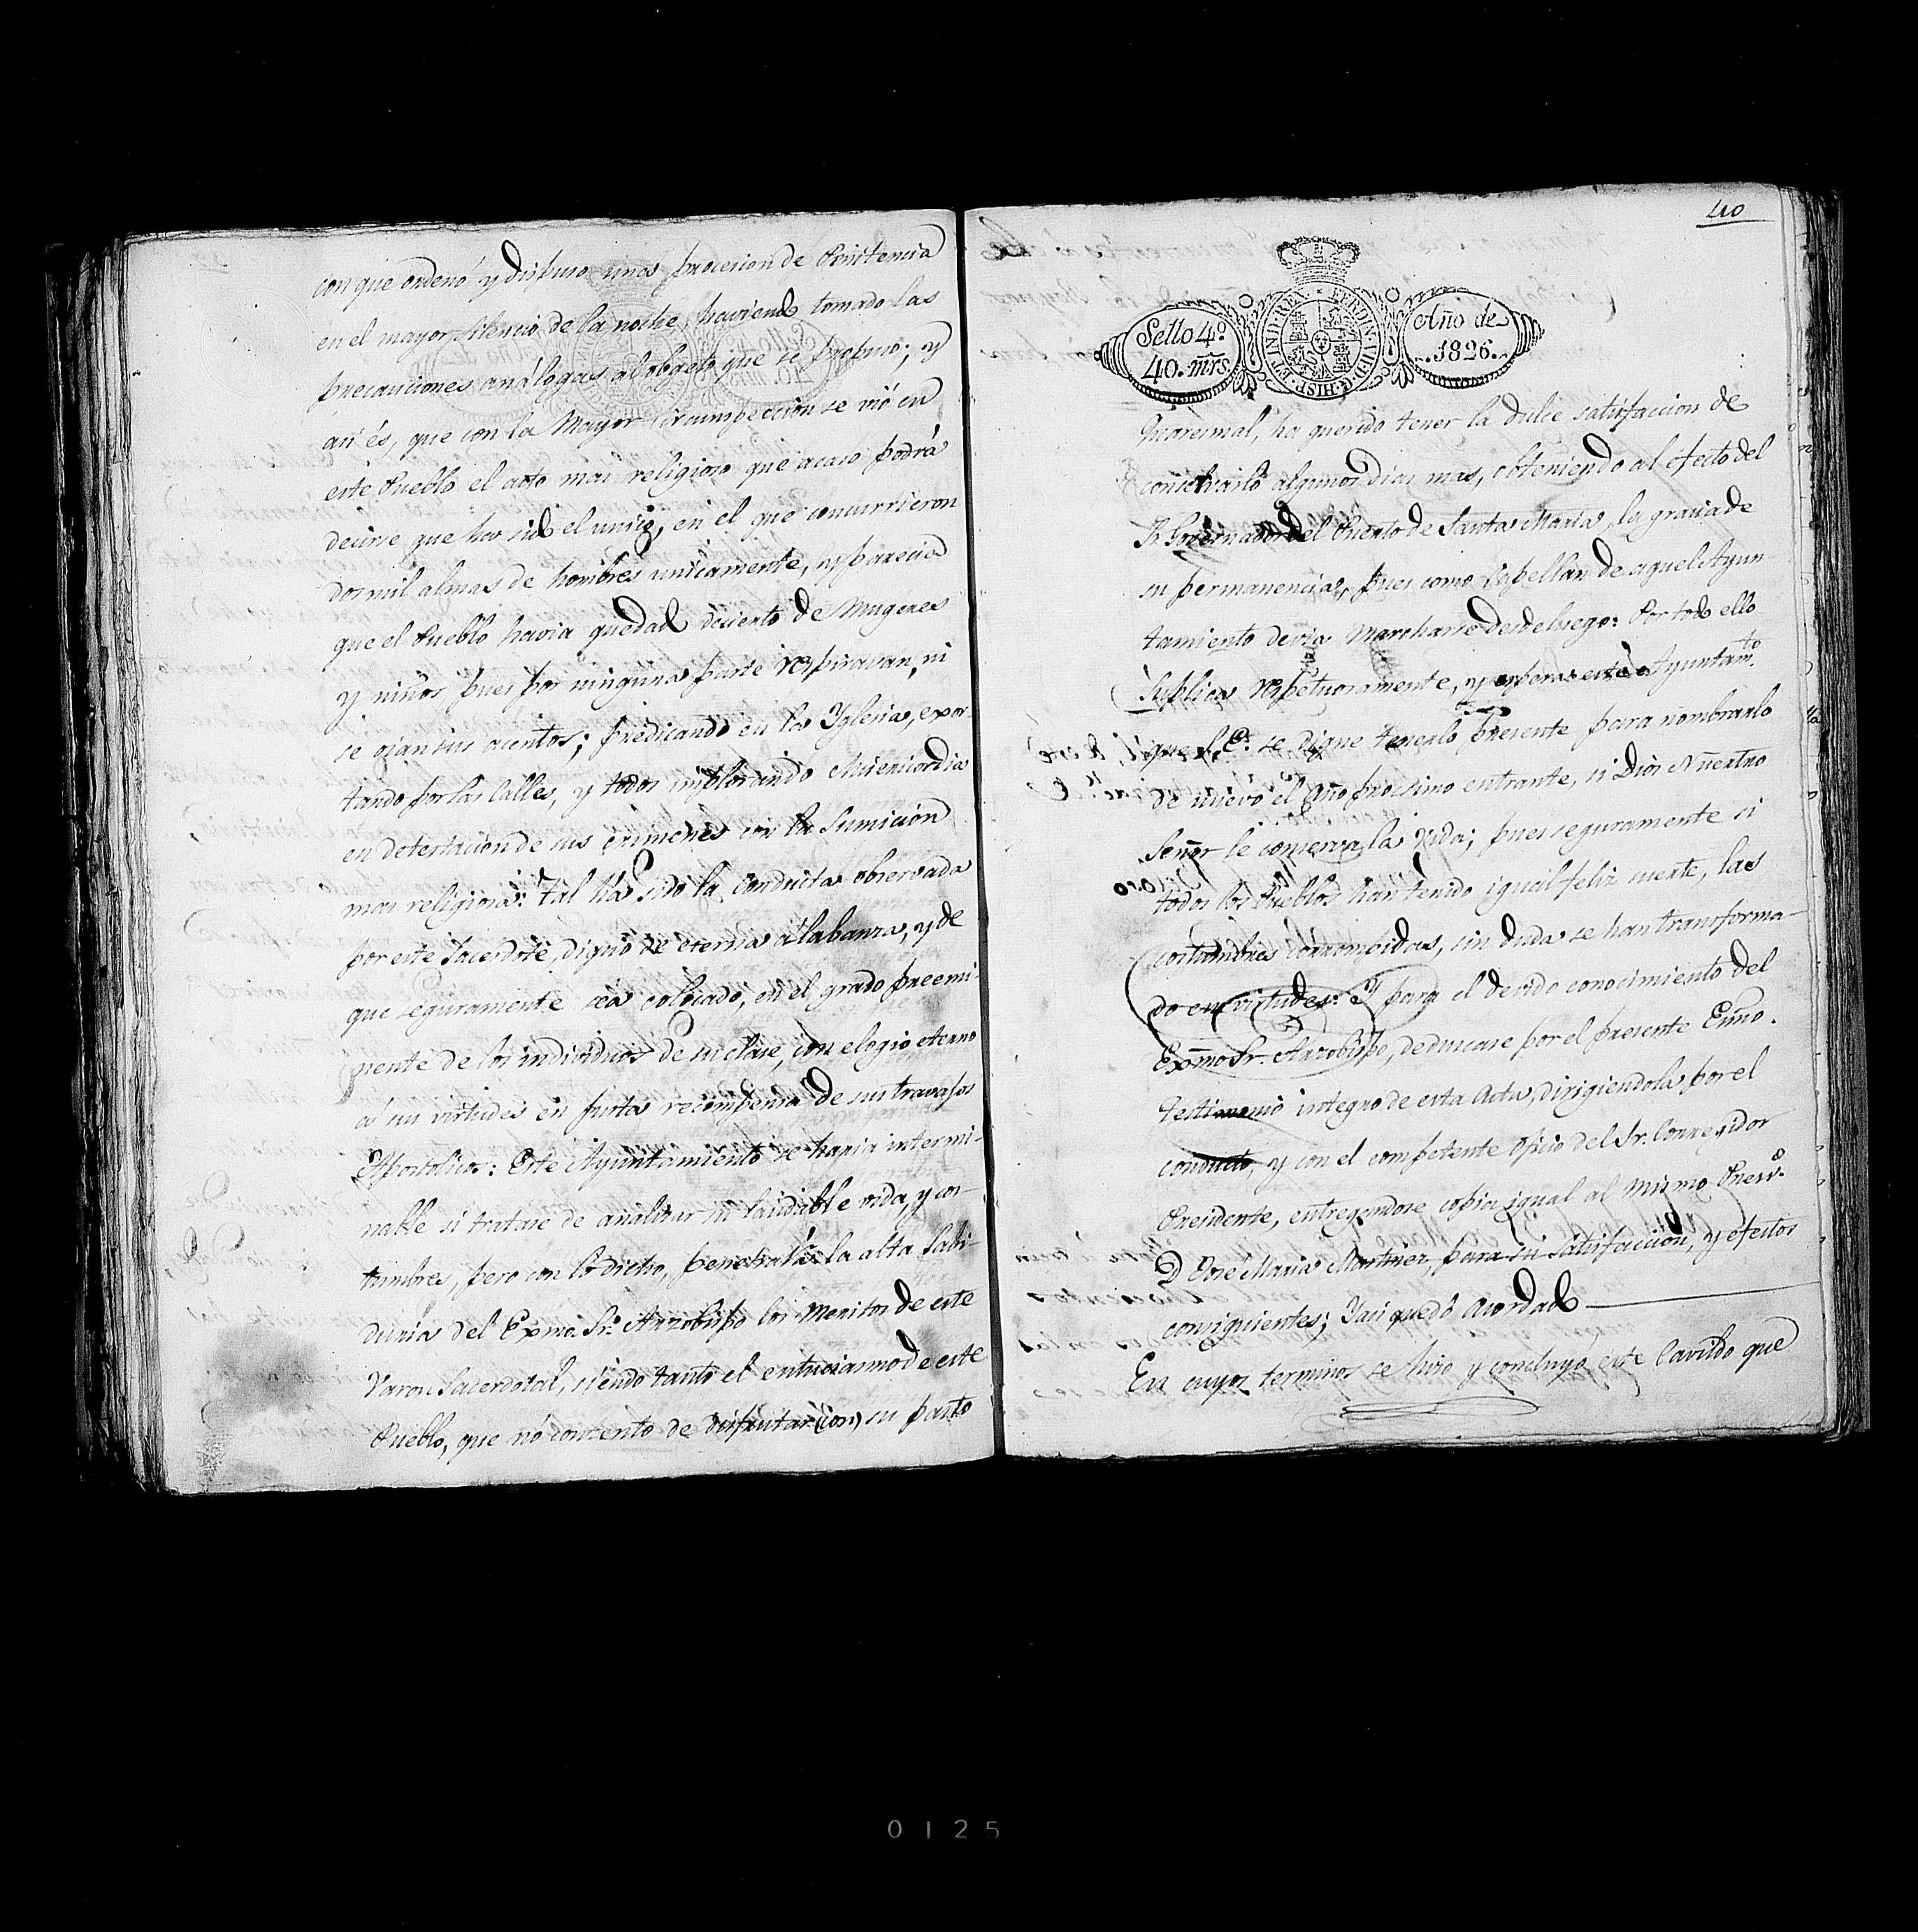 con que ordenó y dispuso unas procesion de Penitencia
en el mayor silencio de la noche, haviendo tomado las
precauciones análogas al obgeto que se propuso; y
asi és, que con la Mayor Circumspeccion se vió en
este Pueblo el acto mas religioso que acaso podrá
decirse que ha sido el unico, en el que concurrieron
dos mil almas de hombres unicamente, y parecia
que el Pueblo havia quedado desierto de Mugeres
y niños pues por ninguna parte respiravan, ni
se oían sus acentos; predicando en las Yglesias, exor-
tando por las Calles, y todos implorando Misericordia
en detestacion de sus crimenes con la Sumicion
mas religiosa: Tal há sido la Conducta observada
por este Sacerdote, digno de eterna alabanza, y de
que seguramente sea colocado, en el grado preemi-
nente de los individuos de su clase, con elogio eterno
á sus virtudes en justa recompensa de sus travajos
Apostolicos: Este Ayuntamiento se haria intermi-
nable si tratase de analizar su laudable vida, y cos-
tumbres, pero con lo dicho, penetrará la alta Sabi-
duria del Exmo. Sr. Arzobispo los Meritos de este
Varon Sacerdotal, siendo tanto el entuciasmo de este
Pueblo, que nó contento de disfrutar (con) su pasto
40
Sello 4º
40. mrs.
FERDIN. VII. D. G. HISP. ET IND. REX
Año de
1826.
Quaresmal, ha querido tener la dulce satisfaccion de
algunos dias mas, obteniendo al efecto del
Sr. Governador del Puerto de Santa Maria, la gracia de
su permanencia, pues como Capellan de aquel Ayun
tamiento devia Marcharse desde luego: Por todo ello
Suplica respetuosamente, y espera este Ayuntamto.
que S. E. se digne tenerlo presente para nombrarlo
de nuevo el año procsimo entrante, si Dios Nuestro
Señor le conserva la vida; pues seguramente si
todos los Pueblos han tenido igual feliz suerte, las
costumbres corrompidas, sin duda se han transforma-
do en virtudes: Y para el devido conocimiento del
Exmo Sr. Arzobispo, deduzcase por el presente Esno.
testimonio integro de esta Acta, dirigiendola por el
conducto, y con el competente Oficio del Sr. Corregidor
Presidente, entregandose copia igual al mismo Presvo.
D Jose Maria Martinez, para su satisfaccion, y efectos
consiguientes; Yasi quedó Acordado
En cuyos terminos se hizo y concluyo este Cavildo que
0125